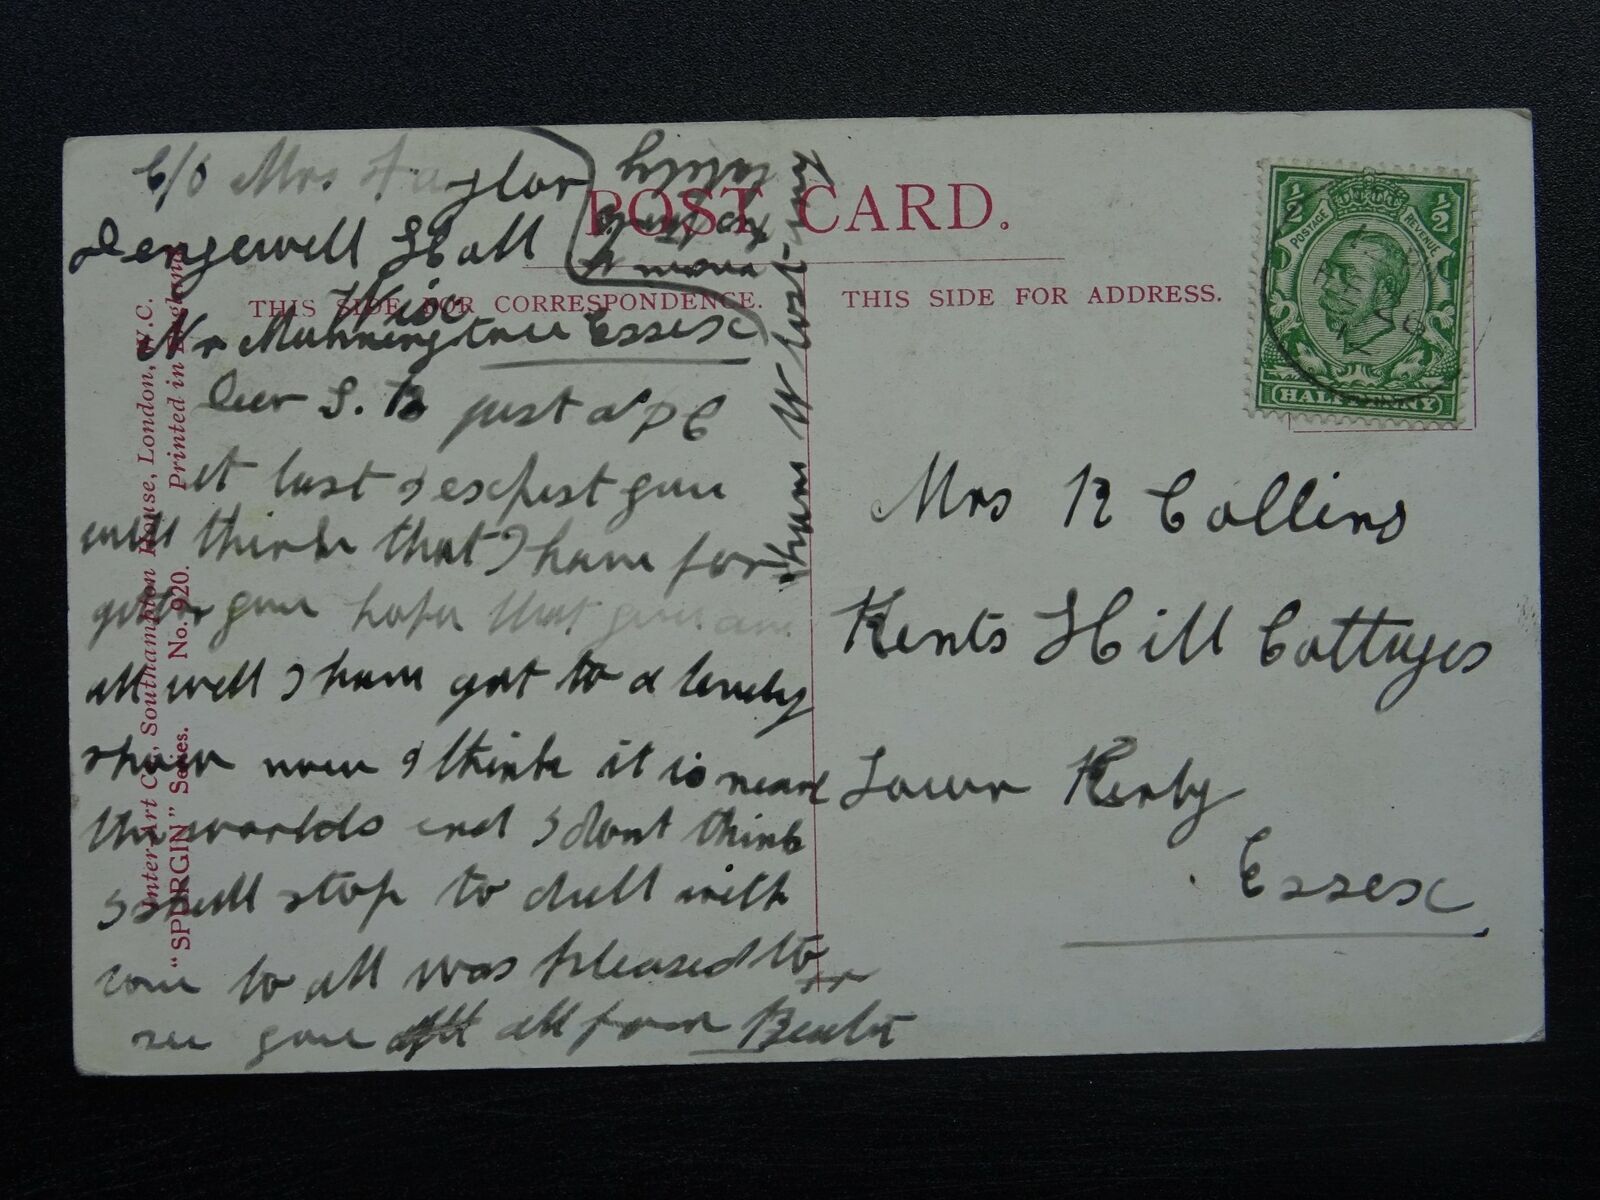 C/O Mrs Taylor
Dengewell Hall
Wix
Nr Manningtree Essex
Dear S. B just a P C
at last I exspest you
will think that I have for
gotten you hope that you are
all well I have got to a lovely
show now I think it is near
the worlds end I dont think
I shall stop to dull with
love to all was pleased to
see you all from Beat
POST CARD.
THIS SIDE FOR CORRESPONDENCE.
THIS SIDE FOR ADDRESS.
Inter-Art Co., Southampton House, London, W.C.
"SPURGIN" Series. No. 920. Printed in England
½ ½
POSTAGE REVENUE
HALFPENNY
Mrs R Collins
Kents Hill Cottages
Lower Kerby
Essex